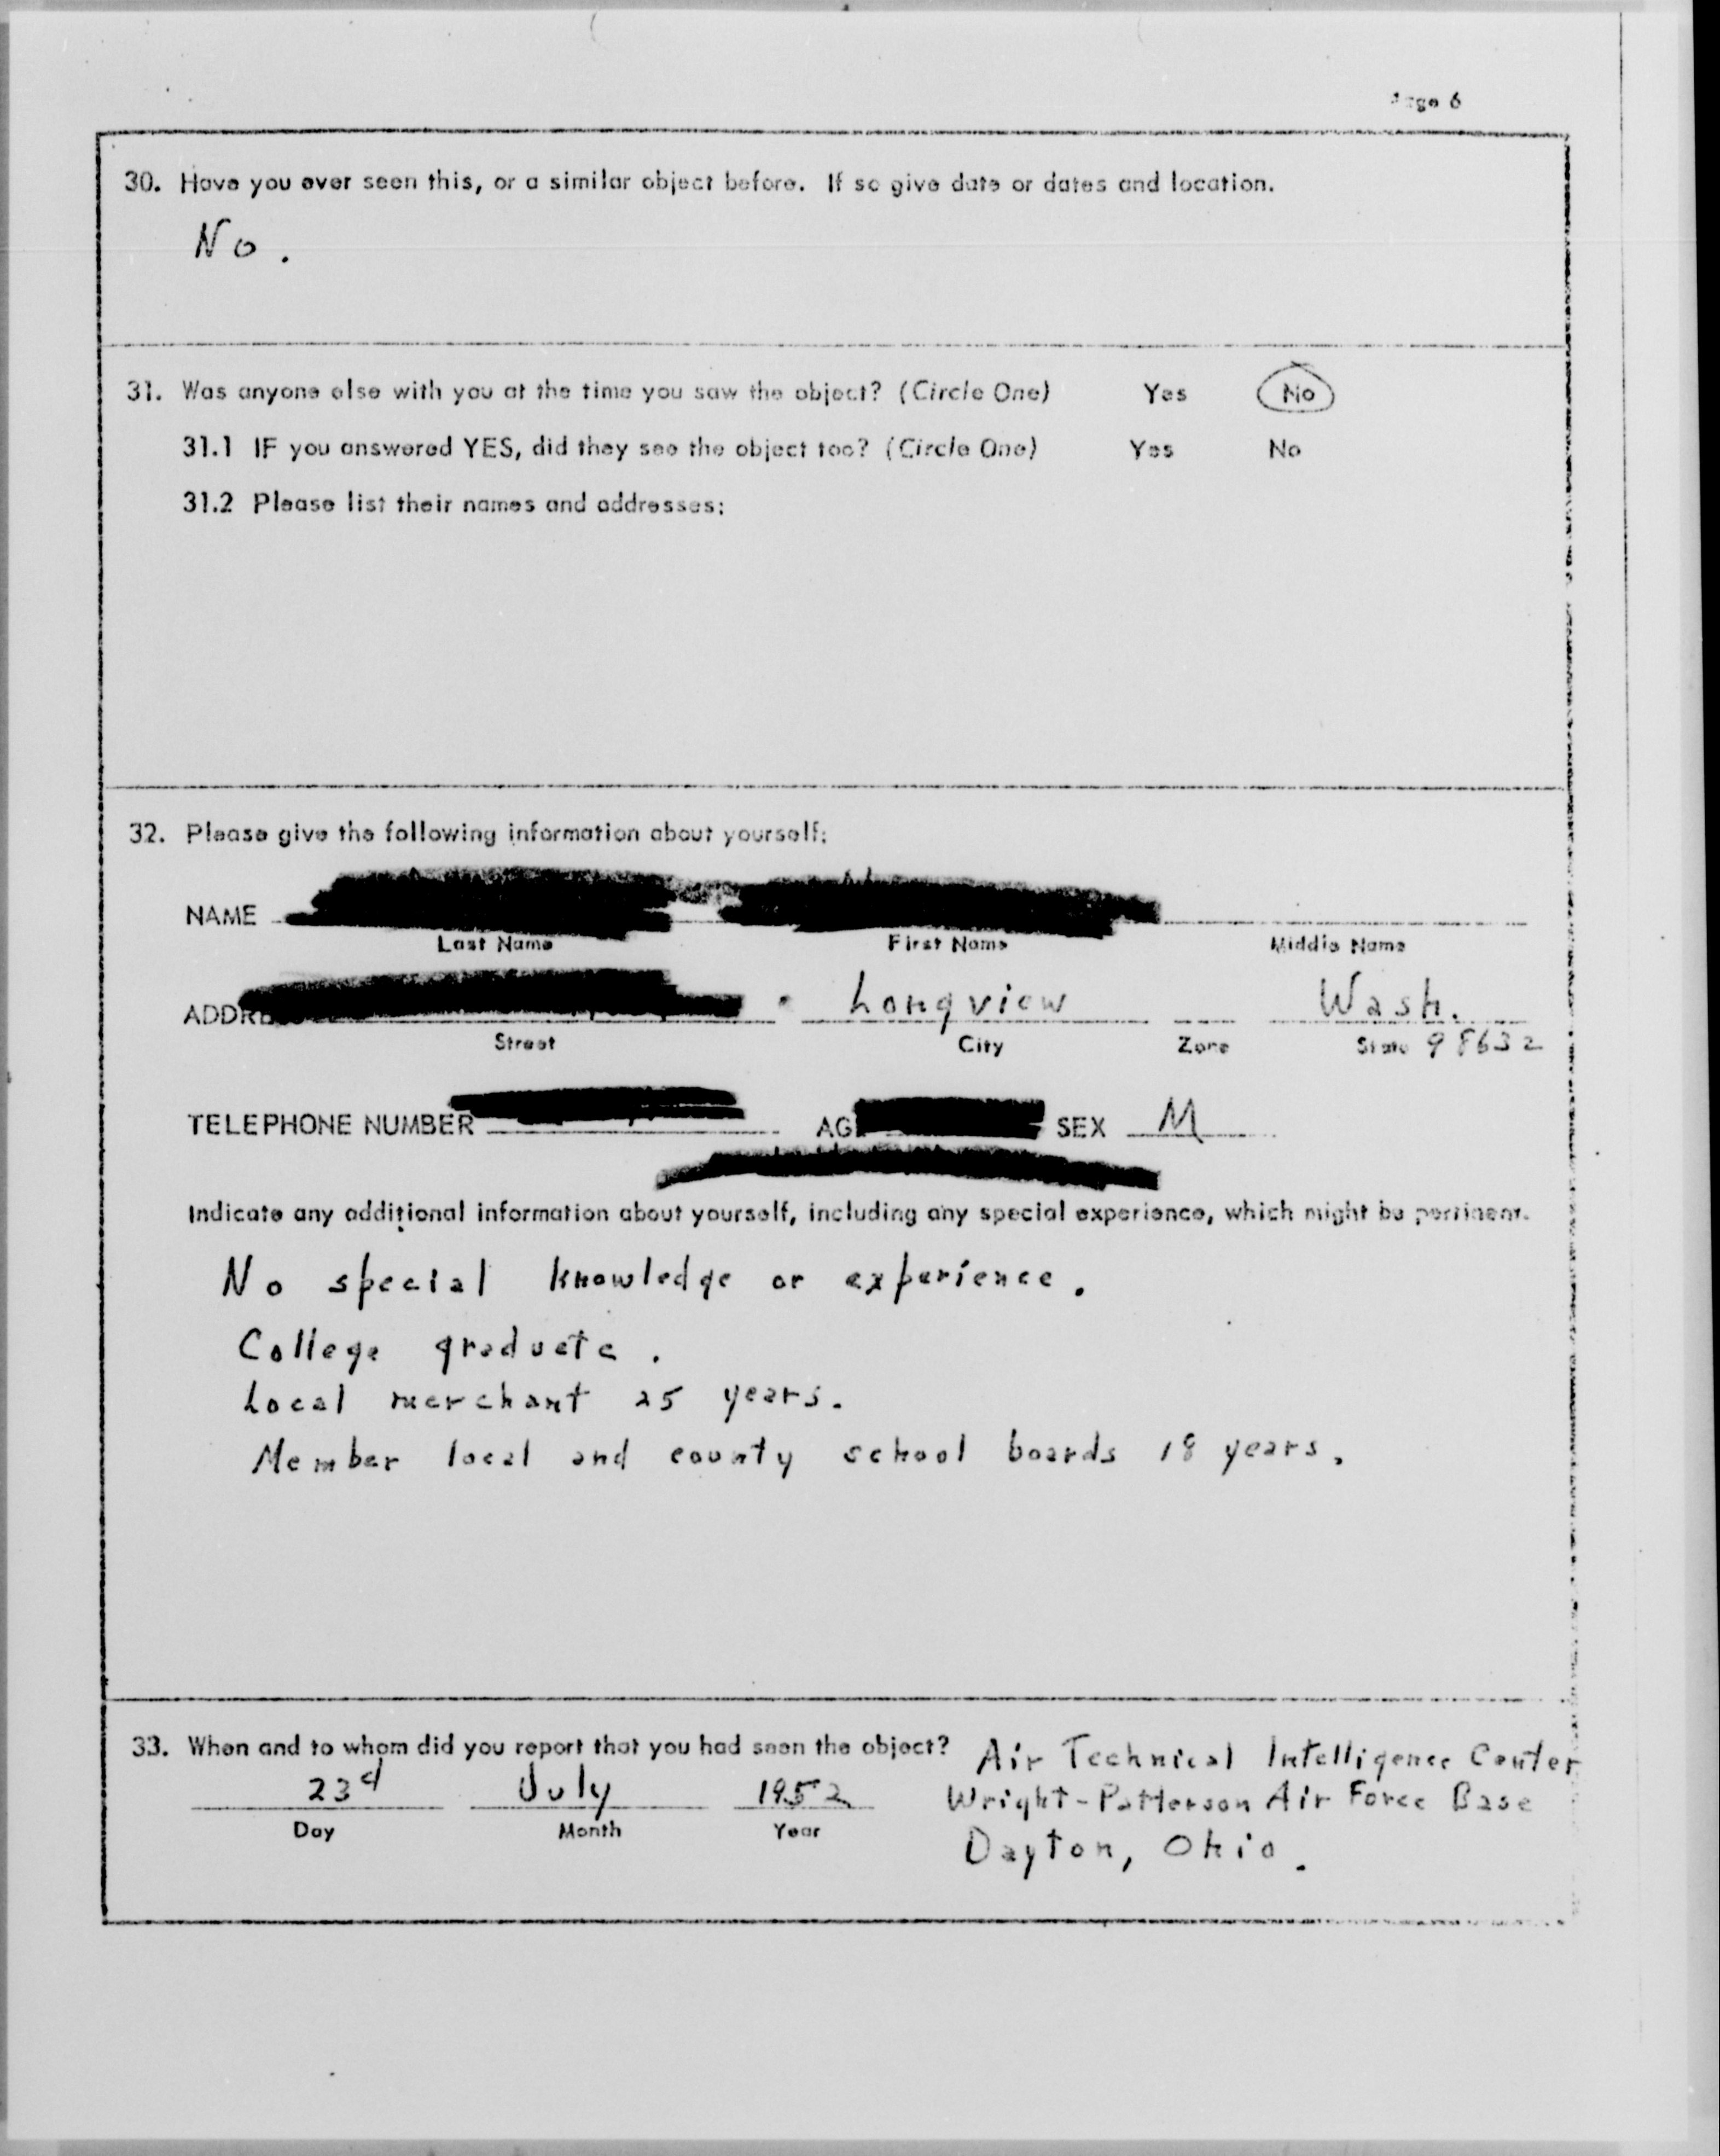 Page 6
30. Have you ever seen this, or a similar object before. If so give date or dates and location.
No.
31. Was anyone else with you at the time you saw the object? (Circle One) Yes No
31.1 IF you answered YES, did they see the object too? (Circle One) Yes No
31.2 Please list their names and addresses:
32. Please give the following information about yourself:
NAME
Last Name First Name Middle Name
ADDRE Longview Wash.
Street City Zone State 98632
TELEPHONE NUMBER AG SEX M
Indicate any additional information about yourself, including any special experience, which might be pertinent.
No special knowledge or experience.
College graduate.
Local merchant 25 years.
Member local and county school boards 18 years.
33. When and to whom did you report that you had seen the object? Air Technical Intelligence Center
23d July 1952 Wright-Patterson Air Force Base
Day Month Year Dayton, Ohio.